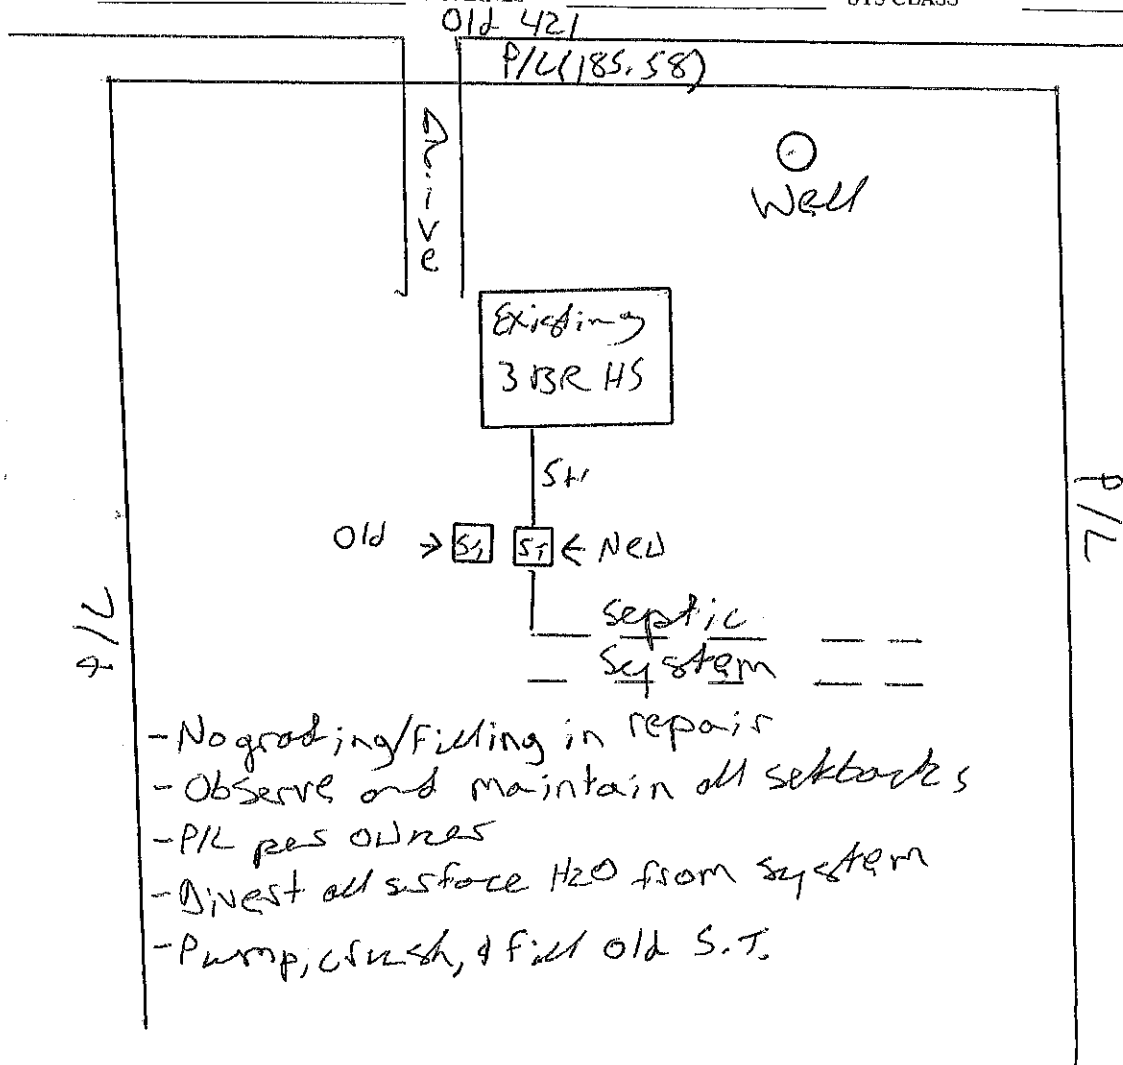 SYS CLASS
Old 421
P/L (185.58)
Drive
Well
Existing
3 BR HS
Old → ST
ST ← New
P/L
P/L
septic
system
- No grading/filling in repair
- Observe and maintain all setbacks
- P/L per owner
- Divert all surface H2O from system
- Pump, crush, & fill old S.T.